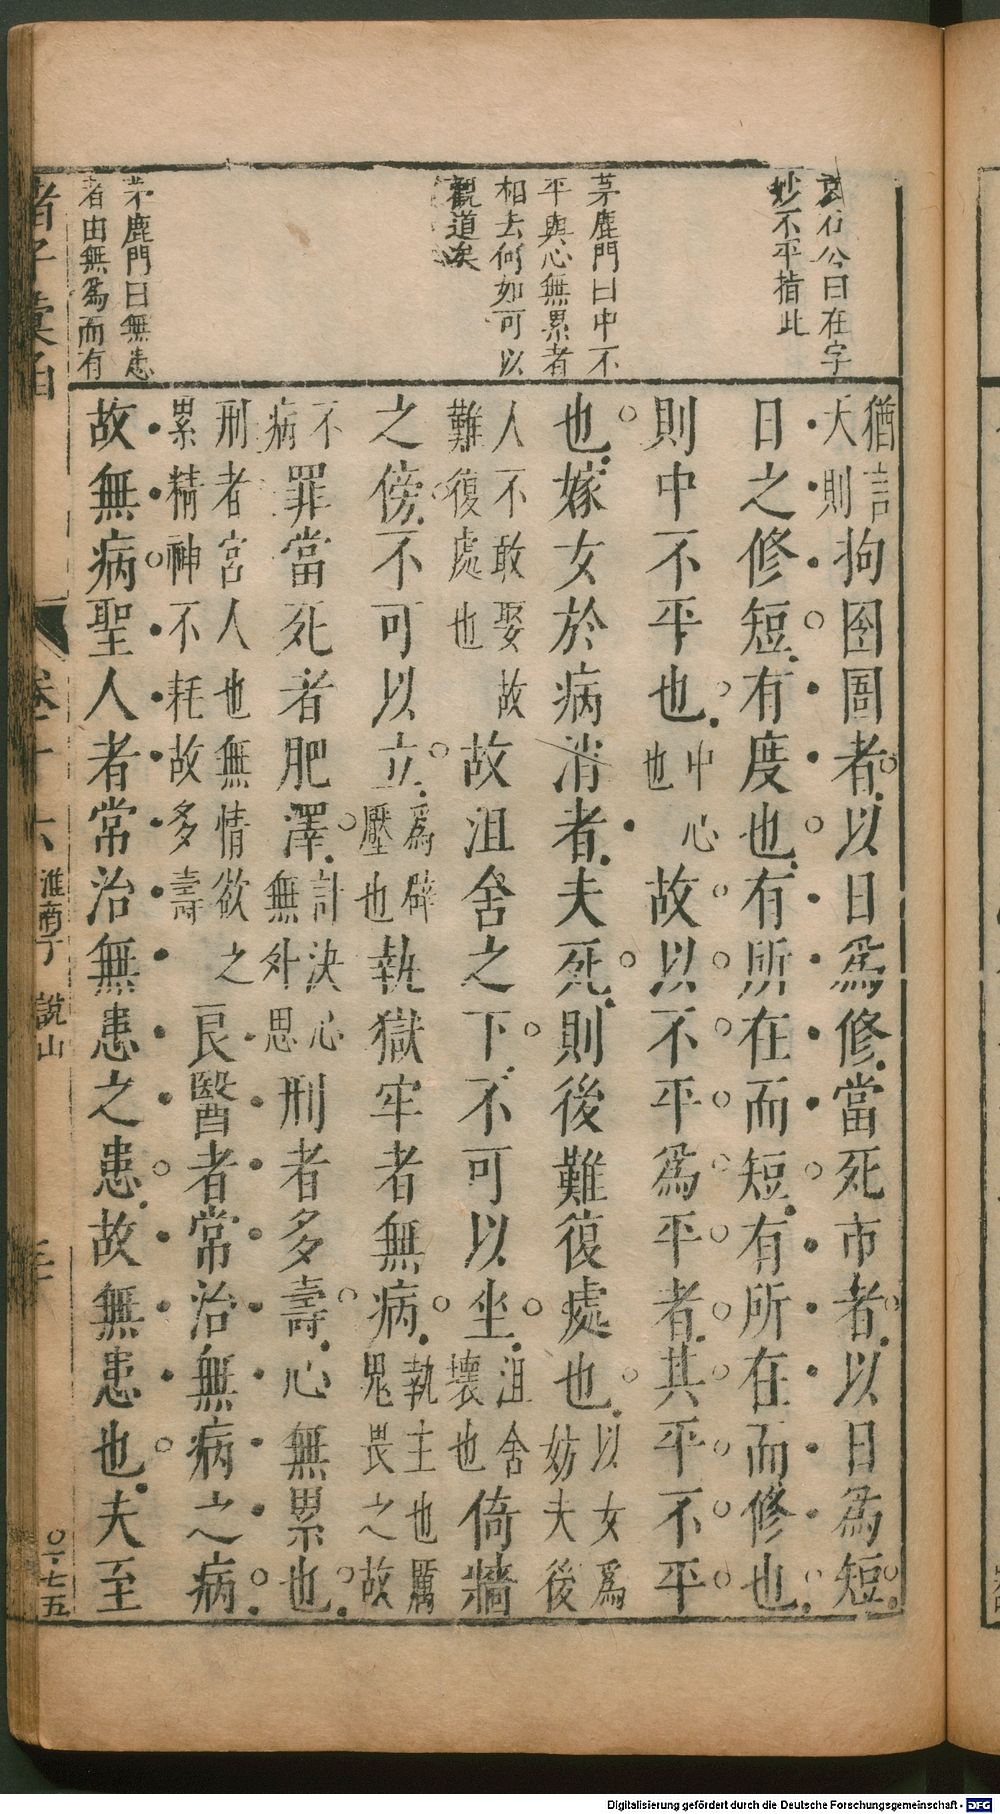 袁石公曰在字
妙不平指此
茅鹿門曰中不
平與心無累者
相去何如可以
觀道矣
茅鹿門曰無患
者由無爲而有
猶言
大則
拘囹圄者以日爲修當死市者以日爲短
日之修短有度也有所在而短有所在而修也
則中不平也
中心
也
故以不平爲平者其平不平
也嫁女於病消者夫死則後難復處也
以女爲
妨夫後
人不敢娶故
難復處也
故沮舍之下不可以坐
沮舍
壞也
倚牆
之傍不可以立
爲辟
壓也
執獄牢者無病
執主也厲
鬼畏之故
不
病
罪當死者肥澤
計決心
無外思
刑者多壽心無累也
刑者宮人也無情欲之
累精神不耗故多壽
良醫者常治無病之病
故無病聖人者常治無患之患故無患也夫至
諸子彙函
卷十六
淮南子 說山
三
〇十七五
Digitalisierung gefördert durch die Deutsche Forschungsgemeinschaft - DFG